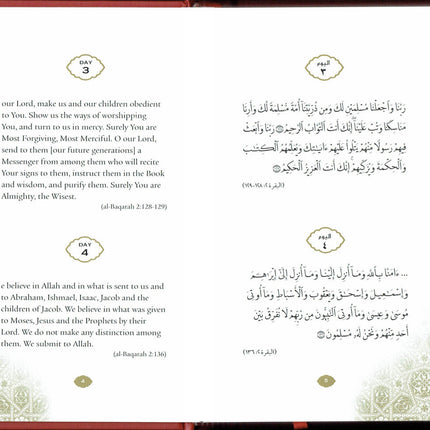 DAY
3
our Lord, make us and our children obedient
to You. Show us the ways of worshipping
You, and turn to us in mercy. Surely You are
Most Forgiving, Most Merciful. O our Lord,
send to them [our future generations] a
Messenger from among them who will recite
Your signs to them, instruct them in the Book
and wisdom, and purify them. Surely You are
Almighty, the Wisest.
(al-Baqarah 2:128-129)
DAY
4
e believe in Allah and in what is sent to us and
to Abraham, Ishmael, Isaac, Jacob and the
children of Jacob. We believe in what was given
to Moses, Jesus and the Prophets by their
Lord. We do not make any distinction among
them. We submit to Allah.
(al-Baqarah 2:136)
4
اليوم
٣
رَبَّنَا وَٱجْعَلْنَا مُسْلِمَيْنِ لَكَ وَمِن ذُرِّيَّتِنَآ أُمَّةً مُّسْلِمَةً لَّكَ وَأَرِنَا
مَنَاسِكَنَا وَتُبْ عَلَيْنَآ إِنَّكَ أَنتَ ٱلتَّوَّابُ ٱلرَّحِيمُ رَبَّنَا وَٱبْعَثْ
فِيهِمْ رَسُولًا مِّنْهُمْ يَتْلُوا۟ عَلَيْهِمْ ءَايَـٰتِكَ وَيُعَلِّمُهُمُ ٱلْكِتَـٰبَ
وَٱلْحِكْمَةَ وَيُزَكِّيهِمْ إِنَّكَ أَنتَ ٱلْعَزِيزُ ٱلْحَكِيمُ
(البقرة ٢: ١٢٨-١٢٩)
اليوم
٤
... ءَامَنَّا بِٱللَّهِ وَمَآ أُنزِلَ إِلَيْنَا وَمَآ أُنزِلَ إِلَىٰٓ إِبْرَٰهِـۧمَ
وَإِسْمَـٰعِيلَ وَإِسْحَـٰقَ وَيَعْقُوبَ وَٱلْأَسْبَاطِ وَمَآ أُوتِىَ
مُوسَىٰ وَعِيسَىٰ وَمَآ أُوتِىَ ٱلنَّبِيُّونَ مِن رَّبِّهِمْ لَا نُفَرِّقُ بَيْنَ
أَحَدٍ مِّنْهُمْ وَنَحْنُ لَهُۥ مُسْلِمُونَ
(البقرة ٢: ١٣٦)
5